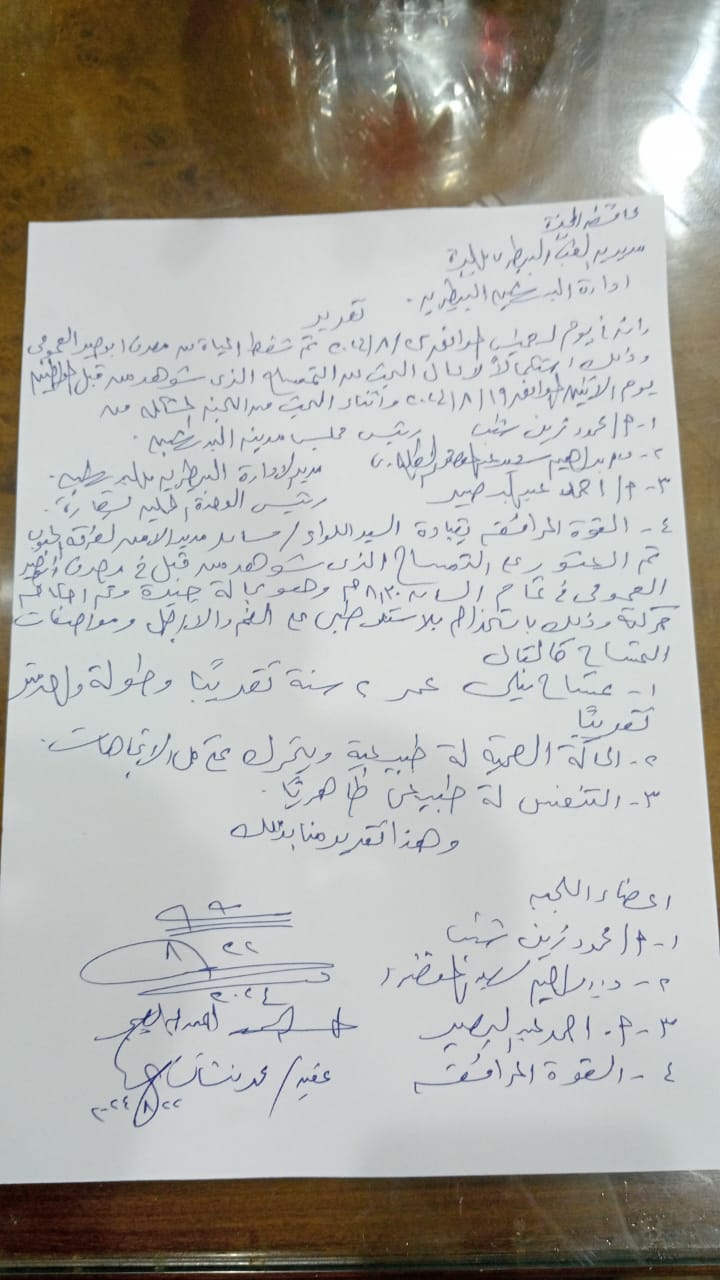 محافظة الجيزة
مديرية الطب البيطرى بالجيزة
ادارة البدرشين البيطرية
تقرير
انه فى يوم الخميس الموافق ٢٢/٨/٢٠٢٤ تم شفط المياة من مصرف ابوصير العمومى
وذلك استكمالاً لأعمال البحث عن التمساح الذى شوهد من قبل المواطنين
يوم الاثنين الموافق ١٩/٨/٢٠٢٤ وأثناء البحث من اللجنة المشكلة من
١- م/ محمود زين رئيس مجلس مدينة البدرشين
٢- د/ ابراهيم سيد مدير الادارة البيطرية بالبدرشين
٣- م/ احمد عبدالبصير رئيس الوحدة المحلية بسقارة
٤- القوة المرافقة بقيادة السيد اللواء/ مساعد مدير الامن لفرقة الجنوب
تم العثور على التمساح الذى شوهد من قبل فى مصرف ابوصير
العمومى فى تمام الساعة ٨٫٣٠ م وهو بحالة جيدة وتم احكام
حركتة وذلك باستخدام بلاستر طبى على الفم والارجل ومواصفات
التمساح كالتالى
١- تمساح نيلى عمر ٢ سنة تقريبًا وطولة واحد متر
تقريبًا
٢- الحالة الصحية لة طبيعية ويتحرك فى كل الاتجاهات
٣- التنفس لة طبيعى ظاهريًا
وهذا تقرير منا بذلك
اعضاء اللجنة
١- م/ محمود زين
٢- د/ ابراهيم سيد
٢٢ ٨
٢٠٢٤
٣- م. احمد عبدالبصير
٤- القوة المرافقة عقيد/ محمد نشأت
٢٢/٨/٢٠٢٤